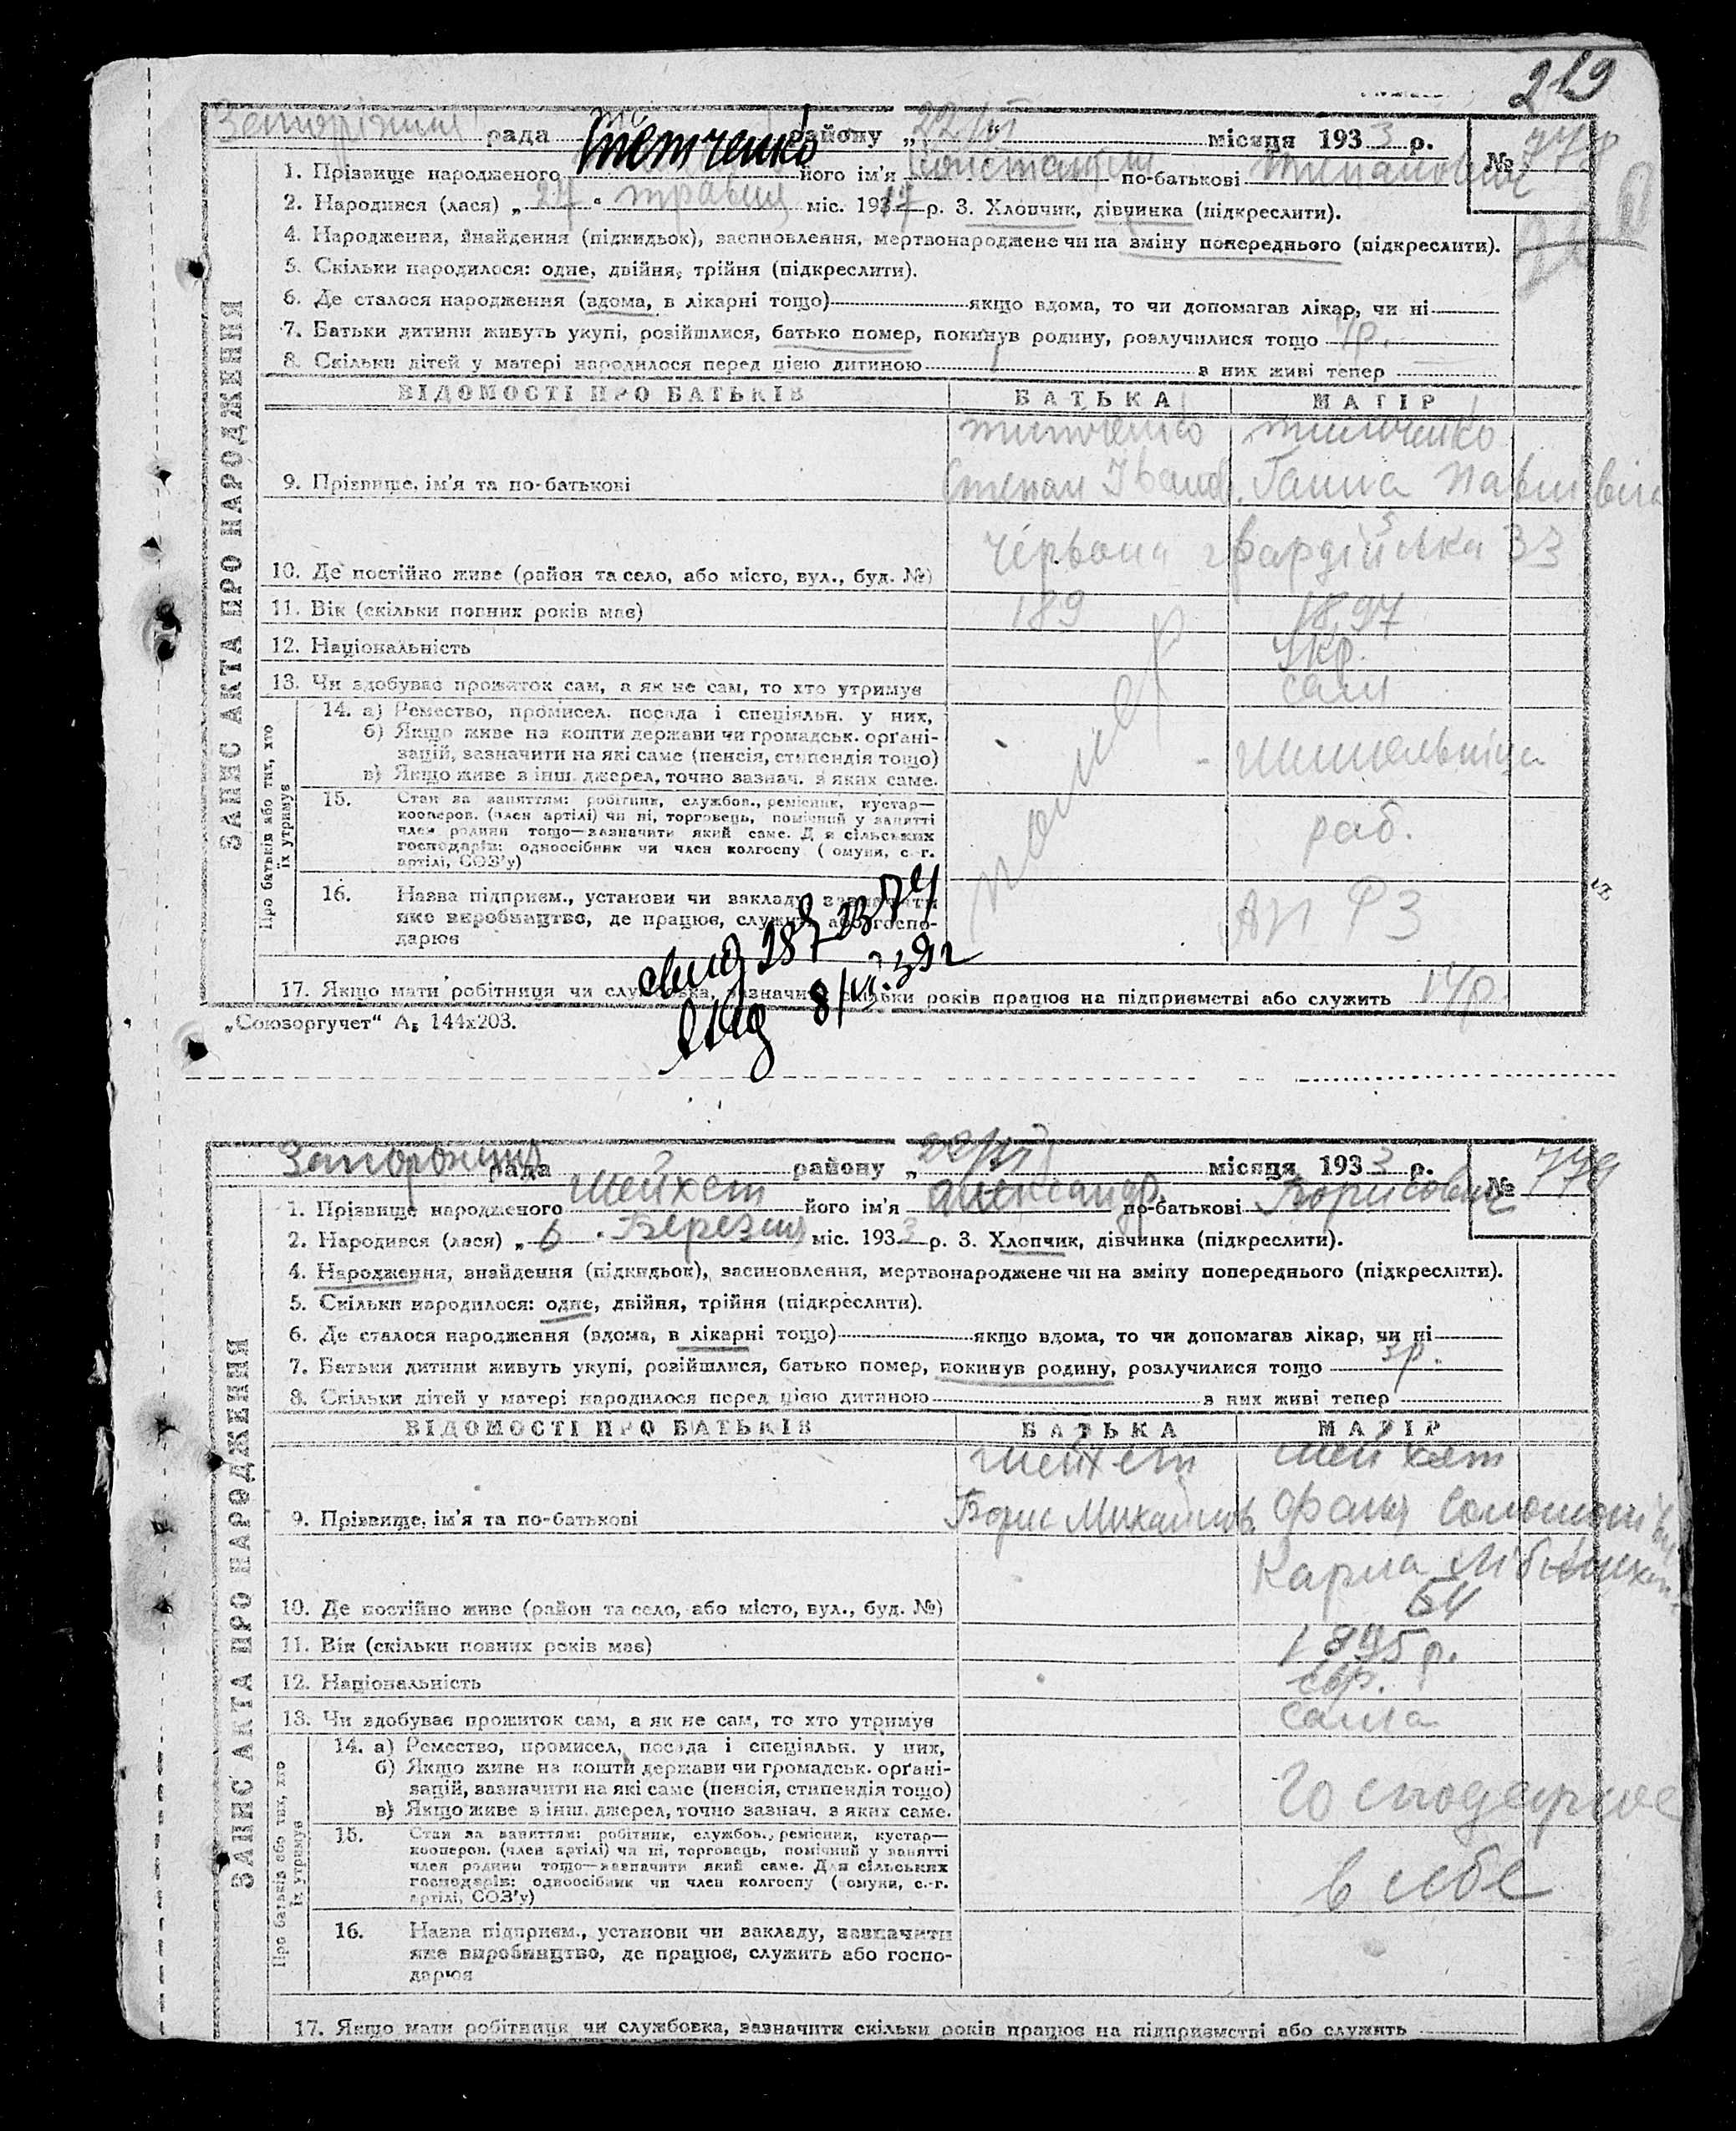 219
рада районну „22/VI" місяця 1933 р.
№ 778
1. Прізвище народженого Тетченко його ім'я по-батькові
2. Народився (лася) „27" травня міс. 1917 р. 3. Хлопчик, дівчинка (підкреслити).
4. Народження, знайдення (підкидьок), засиновлення, мертвонароджене чи на зміну попереднього (підкреслити).
5. Скільки народилося: одне, двійня, трійня (підкреслити).
6. Де сталося народження (вдома, в лікарні тощо) якщо вдома, то чи допомагав лікар, чи ні
7. Батьки дитини живуть укупі, розійшлися, батько помер, покинув родину, розлучилися тощо
8. Скільки дітей у матері народилося перед цією дитиною 1 з них живі тепер
ЗАПИС АКТА ПРО НАРОДЖЕННЯ
ВІДОМОСТІ ПРО БАТЬКІВ БАТЬКА МАТІР
9. Прізвище, ім'я та по-батькові Степан Іванов. Ганна Павлівна
10. Де постійно живе (район та село, або місто, вул., буд. №) Червона гвардійська 33
11. Вік (скільки повних років має) 189 1897
12. Національність Укр.
13. Чи здобуває прожиток сам, а як не сам, то хто утримує сам
Про батьків або тих, хто їх утримує
14. а) Ремество, промисел, посада і спеціяльн. у них,
б) Якщо живе на кошти держави чи громадськ. органі-
зацій, зазначити на які саме (пенсія, стипендія тощо)
в) Якщо живе з інш. джерел, точно зазнач. з яких саме.
помер
15. Стан за заняттям: робітник, службов., ремісник, кустар—
кооперов. (член артілі) чи ні, торговець, помічний у занятті
член родини тощо—зазначити який саме. Для сільських
господарів: одноосібник чи член колгоспу (комуни, с.-г.
артілі, СОЗ'у)
раб.
16. Назва підприєм., установи чи закладу, зазначити
яке виробництво, де працює, служить або госпо-
дарює
17. Якщо мати робітниця чи службовка, зазначити скільки років працює на підприємстві або служить 14р.
„Союзоргучет" А5 144х203.
рада району „22/VI" місяця 1933 р.
№ 779
1. Прізвище народженого Шейхет його ім'я Александр по-батькові Борисович
2. Народився (лася) „6" Березня міс. 1933 р. 3. Хлопчик, дівчинка (підкреслити).
4. Народження, знайдення (підкидьок), засиновлення, мертвонароджене чи на зміну попереднього (підкреслити).
5. Скільки народилося: одне, двійня, трійня (підкреслити).
6. Де сталося народження (вдома, в лікарні тощо) якщо вдома, то чи допомагав лікар, чи ні
7. Батьки дитини живуть укупі, розійшлися, батько помер, покинув родину, розлучилися тощо 3р.
8. Скільки дітей у матері народилося перед цією дитиною з них живі тепер
ЗАПИС АКТА ПРО НАРОДЖЕННЯ
ВІДОМОСТІ ПРО БАТЬКІВ БАТЬКА МАТІР
Шейхет Шейхет
9. Прізвище, ім'я та по-батькові Борис Михайлов. Фаня Соломонівна
Карла Лібкнехт
10. Де постійно живе (район та село, або місто, вул., буд. №) 54
11. Вік (скільки повних років має) 1895р.
12. Національність євр.
13. Чи здобуває прожиток сам, а як не сам, то хто утримує сама
Про батьків або тих, хто їх утримує
14. а) Ремество, промисел, посада і спеціяльн. у них,
б) Якщо живе на кошти держави чи громадськ. органі-
зацій, зазначити на які саме (пенсія, стипендія тощо)
в) Якщо живе з інш. джерел, точно зазнач. з яких саме.
Господарює
15. Стан за заняттям: робітник, службов., ремісник, кустар—
кооперов. (член артілі) чи ні, торговець, помічний у занятті
член родини тощо—зазначити який саме. Для сільських
господарів: одноосібник чи член колгоспу (комуни, с.-г.
артілі, СОЗ'у)
в себе
16. Назва підприєм., установи чи закладу, зазначити
яке виробництво, де працює, служить або госпо-
дарює
17. Якщо мати робітниця чи службовка, зазначити скільки років працює на підприємстві або служить